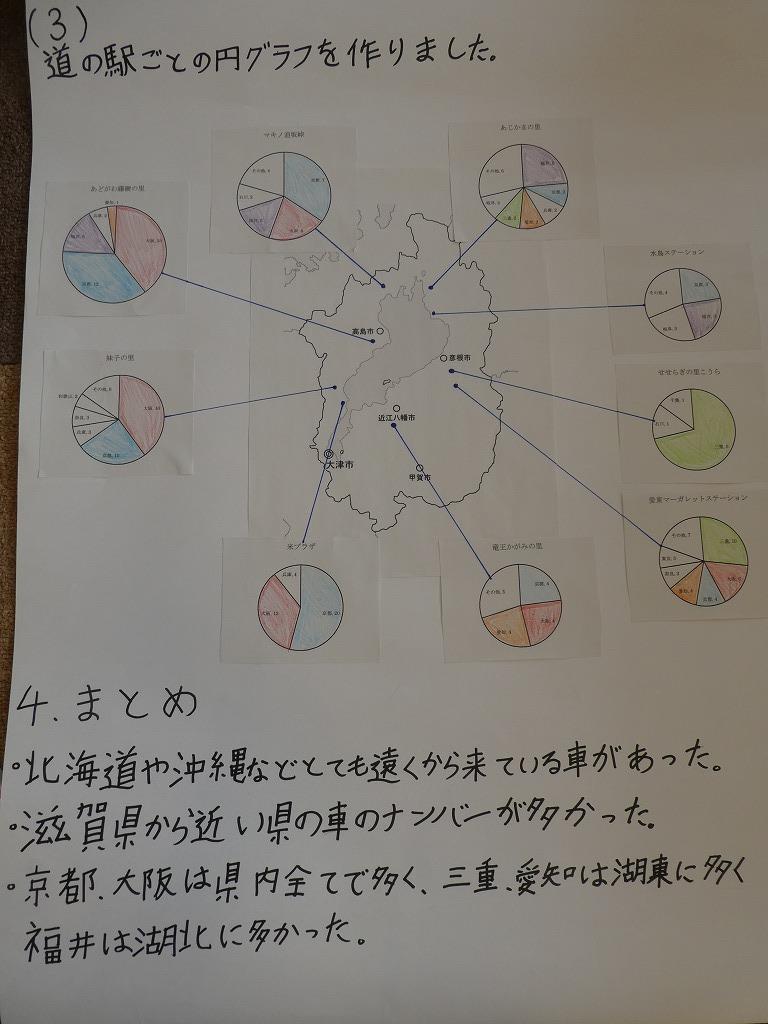 (3)
道の駅ごとの円グラフを作りました。
マキノ追坂峠
その他, 4
石川, 2
大阪, 4
あぢかまの里
その他, 6
あどがわ藤樹の里
愛知, 1
兵庫, 2
京都, 12
水鳥ステーション
その他, 4
高島市
彦根市
せせらぎの里こうら
千葉, 1
石川, 1
妹子の里
その他, 8
和歌山, 2
奈良, 3
兵庫, 3
大阪, 16
京都, 10
近江八幡市
大津市
甲賀市
愛東マーガレットステーション
その他, 7
三重, 10
京都, 4
愛知, 4
米プラザ
兵庫, 4
大阪, 12
京都, 20
竜王かがみの里
その他, 5
京都, 4
大阪, 4
愛知, 4
4. まとめ
・北海道や沖縄などとても遠くから来ている車があった。
・滋賀県から近い県の車のナンバーが多かった。
・京都、大阪は県内全てで多く、三重、愛知は湖東に多く
福井は湖北に多かった。